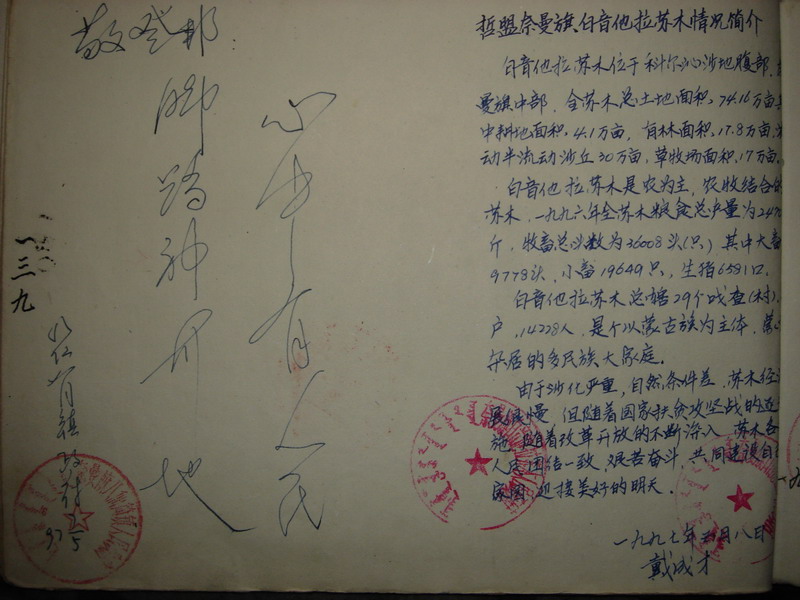 敬登邦
脚踏神州地
心中有人民
一三九
镇政府
97.5
哲盟奈曼旗白音他拉苏木情况简介
白音他拉苏木位于科尔沁沙地腹部,
曼旗中部,全苏木总土地面积,74.16万亩
中耕地面积,4.1万亩,有林面积,17.8万亩,
动半流动沙丘30万亩,草牧场面积,17万亩,
白音他拉苏木是农为主,农牧结合的
苏木,一九九六年全苏木粮食总产量为2470
斤,牧畜总头数为36008头(只)其中大畜
9778头,小畜19649只,生猪6581口.
白音他拉苏木总辖29个嘎查(村)
户,14228人,是个以蒙古族为主体,蒙
杂居的多民族大家庭.
由于沙化严重,自然条件差,苏木经
展缓慢,但随着国家扶贫攻坚战的
施,随着改革开放的不断深入,苏木各
人民团结一致,艰苦奋斗,共同建设自
家园,迎接美好的明天.
一九九七年五月八日
戴成才